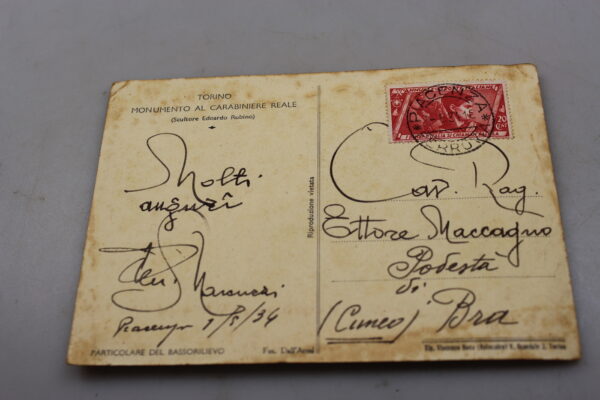 TORINO
MONUMENTO AL CARABINIERE REALE
(Scultore Edoardo Rubino)
Molti
auguri
Piacenza 1/8/34
PARTICOLARE DEL BASSORILIEVO
Fot. Dall'Armi
Riproduzione vietata
PIACENZA
FERROVIA
20
Cav. Rag.
Ettore Maccagno
Podestà
di
(Cuneo) Bra
Torino